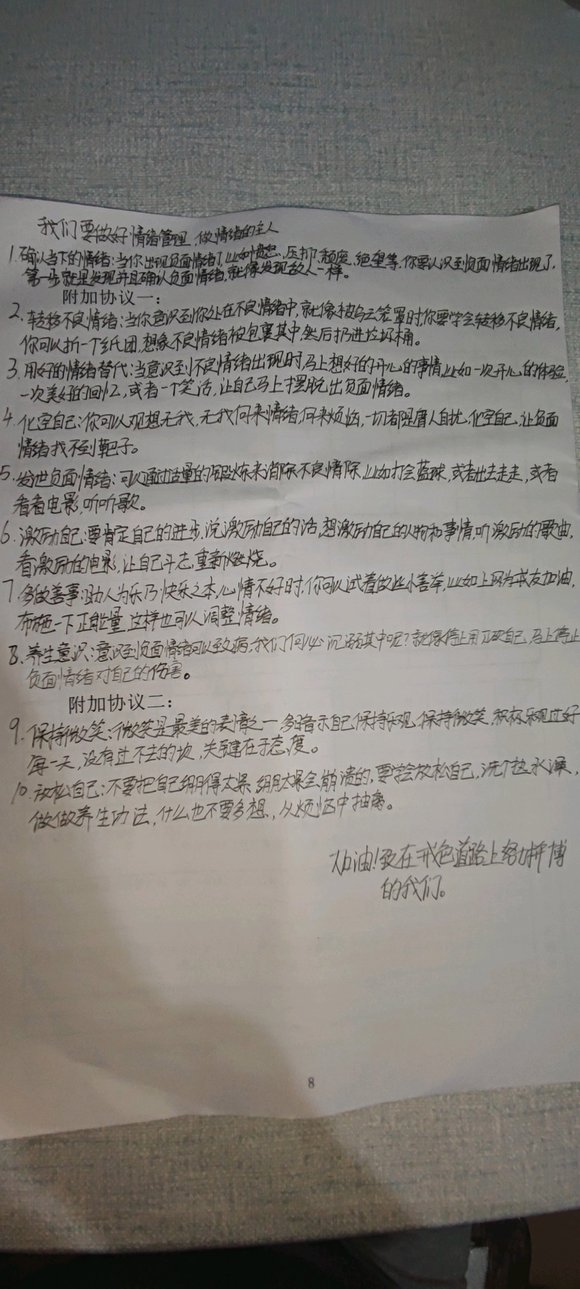 我们要做好情绪管理,做情绪的主人
1.确认当下的情绪:当你出现负面情绪了,比如愤怒,压抑,颓废,绝望等,你要认识到负面情绪出现了,
第一步就是发现并且确认负面情绪,就像发现敌人一样。
附加协议一:
2.转移不良情绪:当你意识到你处在不良情绪中,就像被乌云笼罩时你要学会转移不良情绪,
你可以折一个纸团,想象不良情绪被包裹其中,然后扔进垃圾桶。
3.用好的情绪替代:当意识到不良情绪出现时,马上想好的开心的事情,比如一次开心的体验,
一次美好的回忆,或者一个笑话,让自己马上摆脱出负面情绪。
4.化空自己:你可以观想无我,无我何来情绪,何来烦恼,一切都是庸人自扰,化空自己,让负面
情绪找不到靶子。
5.发泄负面情绪:可以通过适量的锻炼来消除不良情绪,比如打会蓝球,或者出去走走,或者
看看电影,听听歌。
6.激励自己:要肯定自己的进步,说激励自己的话,想激励自己的人物和事情,听激励的歌曲,
看激励的电影,让自己斗志重新燃烧。
7.多做善事:助人为乐乃快乐之本,心情不好时,你可以试着做些小善举,比如上网为戒友加油,
布施一下正能量,这样也可以调整情绪。
8.养生意识:意识到负面情绪可以致病,我们何必沉溺其中呢?就像停止用刀砍自己,马上停止
负面情绪对自己的伤害。
附加协议二:
9.保持微笑:微笑是最美的表情之一,多暗示自己保持乐观,保持微笑,积极乐观过好
每一天,没有过不去的坎,关键在于态度。
10.放松自己:不要把自己绷得太紧,绷太紧会崩溃的,要学会放松自己,洗个热水澡,
做做养生功法,什么也不要多想,从烦恼中抽离。
加油!致在戒色道路上努力拼博
的我们。
8